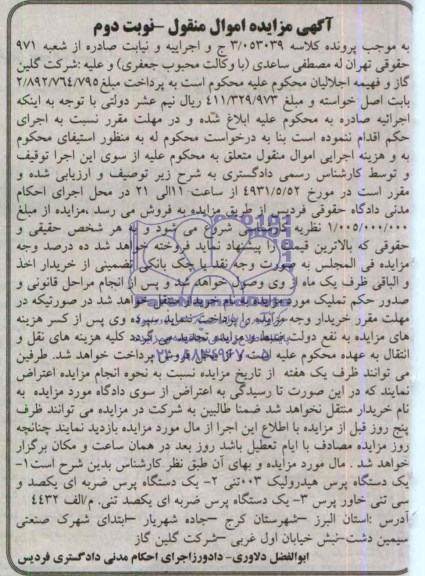 آگهی مزایده اموال منقول –نوبت دوم
به موجب پرونده کلاسه ۳/۰۵۳۰۳۹ ج و اجراییه و نیابت صادره از شعبه ۹۷۱
حقوقی تهران له مصطفی ساعدی (با وکالت محبوب جعفری) و علیه :شرکت گلین
گاز و فهیمه اجلالیان محکوم علیه محکوم است به پرداخت مبلغ ۲/۸۹۲/۷۶۴/۷۹۵
بابت اصل خواسته و مبلغ ۴۱۱/۳۲۹/۹۷۳ ریال نیم عشر دولتی با توجه به اینکه
اجرائیه صادره به محکوم علیه ابلاغ شده و در مهلت مقرر نسبت به اجرای
حکم اقدام ننموده است بنا به درخواست محکوم له به منظور استیفای محکوم
به و هزینه اجرایی اموال منقول متعلق به محکوم علیه از سوی این اجرا توقیف
و توسط کارشناس رسمی دادگستری به شرح زیر توصیف و ارزیابی شده و
مقرر است در مورخ ۴۹۳۱/۵/۵۲ از ساعت ۱۱الی ۲۱ در محل اجرای احکام
مدنی دادگاه حقوقی فردیس از طریق مزایده به فروش می رسد .مزایده از مبلغ
۱/۰۰۵/۰۰۰/۰۰۰ نظریه کارشناسی شروع می شود و به هر شخص حقیقی و
حقوقی که بالاترین قیمت را پیشنهاد نماید فروخته خواهد شد ده درصد وجه
مزایده فی المجلس به صورت وجه نقد یا چک بانکی تضمینی از خریدار اخذ
و الباقی ظرف یک ماه از وی وصول خواهد شد و پس از انجام مراحل قانونی و
صدور حکم تملیک مورد مزایده به نام خریدار منتقل خواهد شد در صورتیکه در
مهلت مقرر خریدار وجه مزایده را پرداخت ننماید سپرده وی پس از کسر هزینه
های مزایده به نفع دولت ضبط و مزایده تجدید می گردد کلیه هزینه های نقل و
انتقال به عهده محکوم علیه است و از محل فروش پرداخت خواهد شد. طرفین
می توانند ظرف یک هفته از تاریخ مزایده نسبت به نحوه انجام مزایده اعتراض
نمایند که در این صورت تا رسیدگی به اعتراض از سوی دادگاه مورد مزایده به
نام خریدار منتقل نخواهد شد ضمنا طالبین به شرکت در مزایده می توانند ظرف
پنج روز قبل از مزایده با اطلاع این اجرا از مال مورد مزایده بازدید نمایند چنانچه
روز مزایده مصادف با ایام تعطیل باشد روز بعد در همان ساعت و مکان برگزار
خواهد شد . مال مورد مزایده و بهای آن طبق نظر کارشناس بدین شرح است۱–
یک دستگاه پرس هیدرولیک ۰۰۳تنی ۲– یک دستگاه پرس ضربه ای یکصد و
سی تنی خاور پرس ۳– یک دستگاه پرس ضربه ای یکصد تنی. م/الف ۴۴۳۲
آدرس :استان البرز –شهرستان کرج –جاده شهریار –ابتدای شهرک صنعتی
سیمین دشت–نبش خیابان اول غربی –شرکت گلین گاز
ابوالفضل دلاوری– دادورزاجرای احکام مدنی دادگستری فردیس